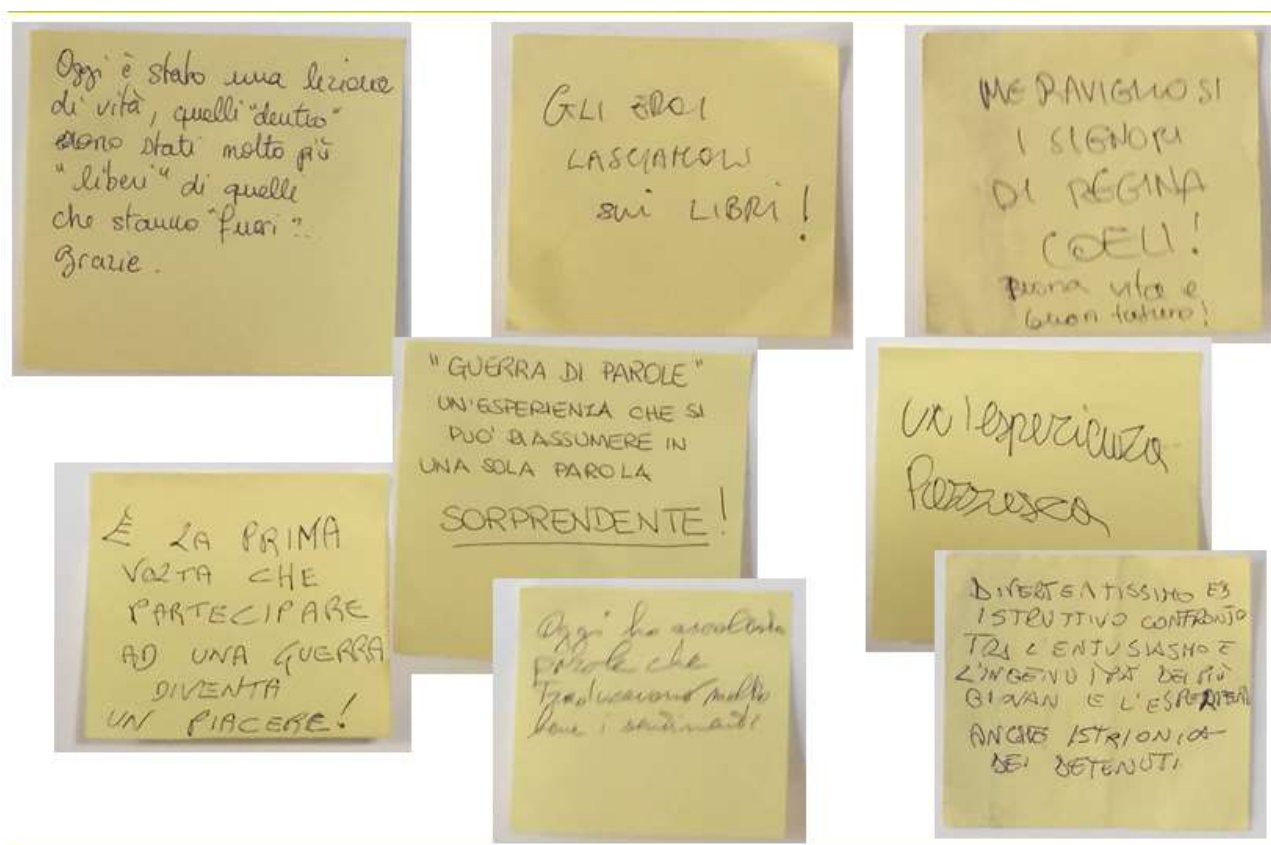 Oggi è stato una lezione
di vità, quelli "dentro"
sono stati molto più
"liberi" di quelli
che stanno "fuori"..
Grazie.
GLI EROI
LASCIAMOLI
sui LIBRI!
MERAVIGLIOSI
I SIGNORI
DI REGINA
COELI!
Buona vita e
buon futuro!
"GUERRA DI PAROLE"
UN'ESPERIENZA CHE SI
PUO' RIASSUMERE IN
UNA SOLA PAROLA
SORPRENDENTE!
un'esperienza
Pazzesca
È LA PRIMA
VOLTA CHE
PARTECIPARE
AD UNA GUERRA
DIVENTA
UN PIACERE!
Oggi ho ascoltato
parole che
Traducevano molto
bene i sentimenti
DIVERTENTISSIMO ED
ISTRUTTIVO CONFRONTO
TRA L'ENTUSIASMO E
L'INGENUITÀ DEI PIÙ
GIOVANI E L'
ANCHE ISTRIONICA
DEI DETENUTI